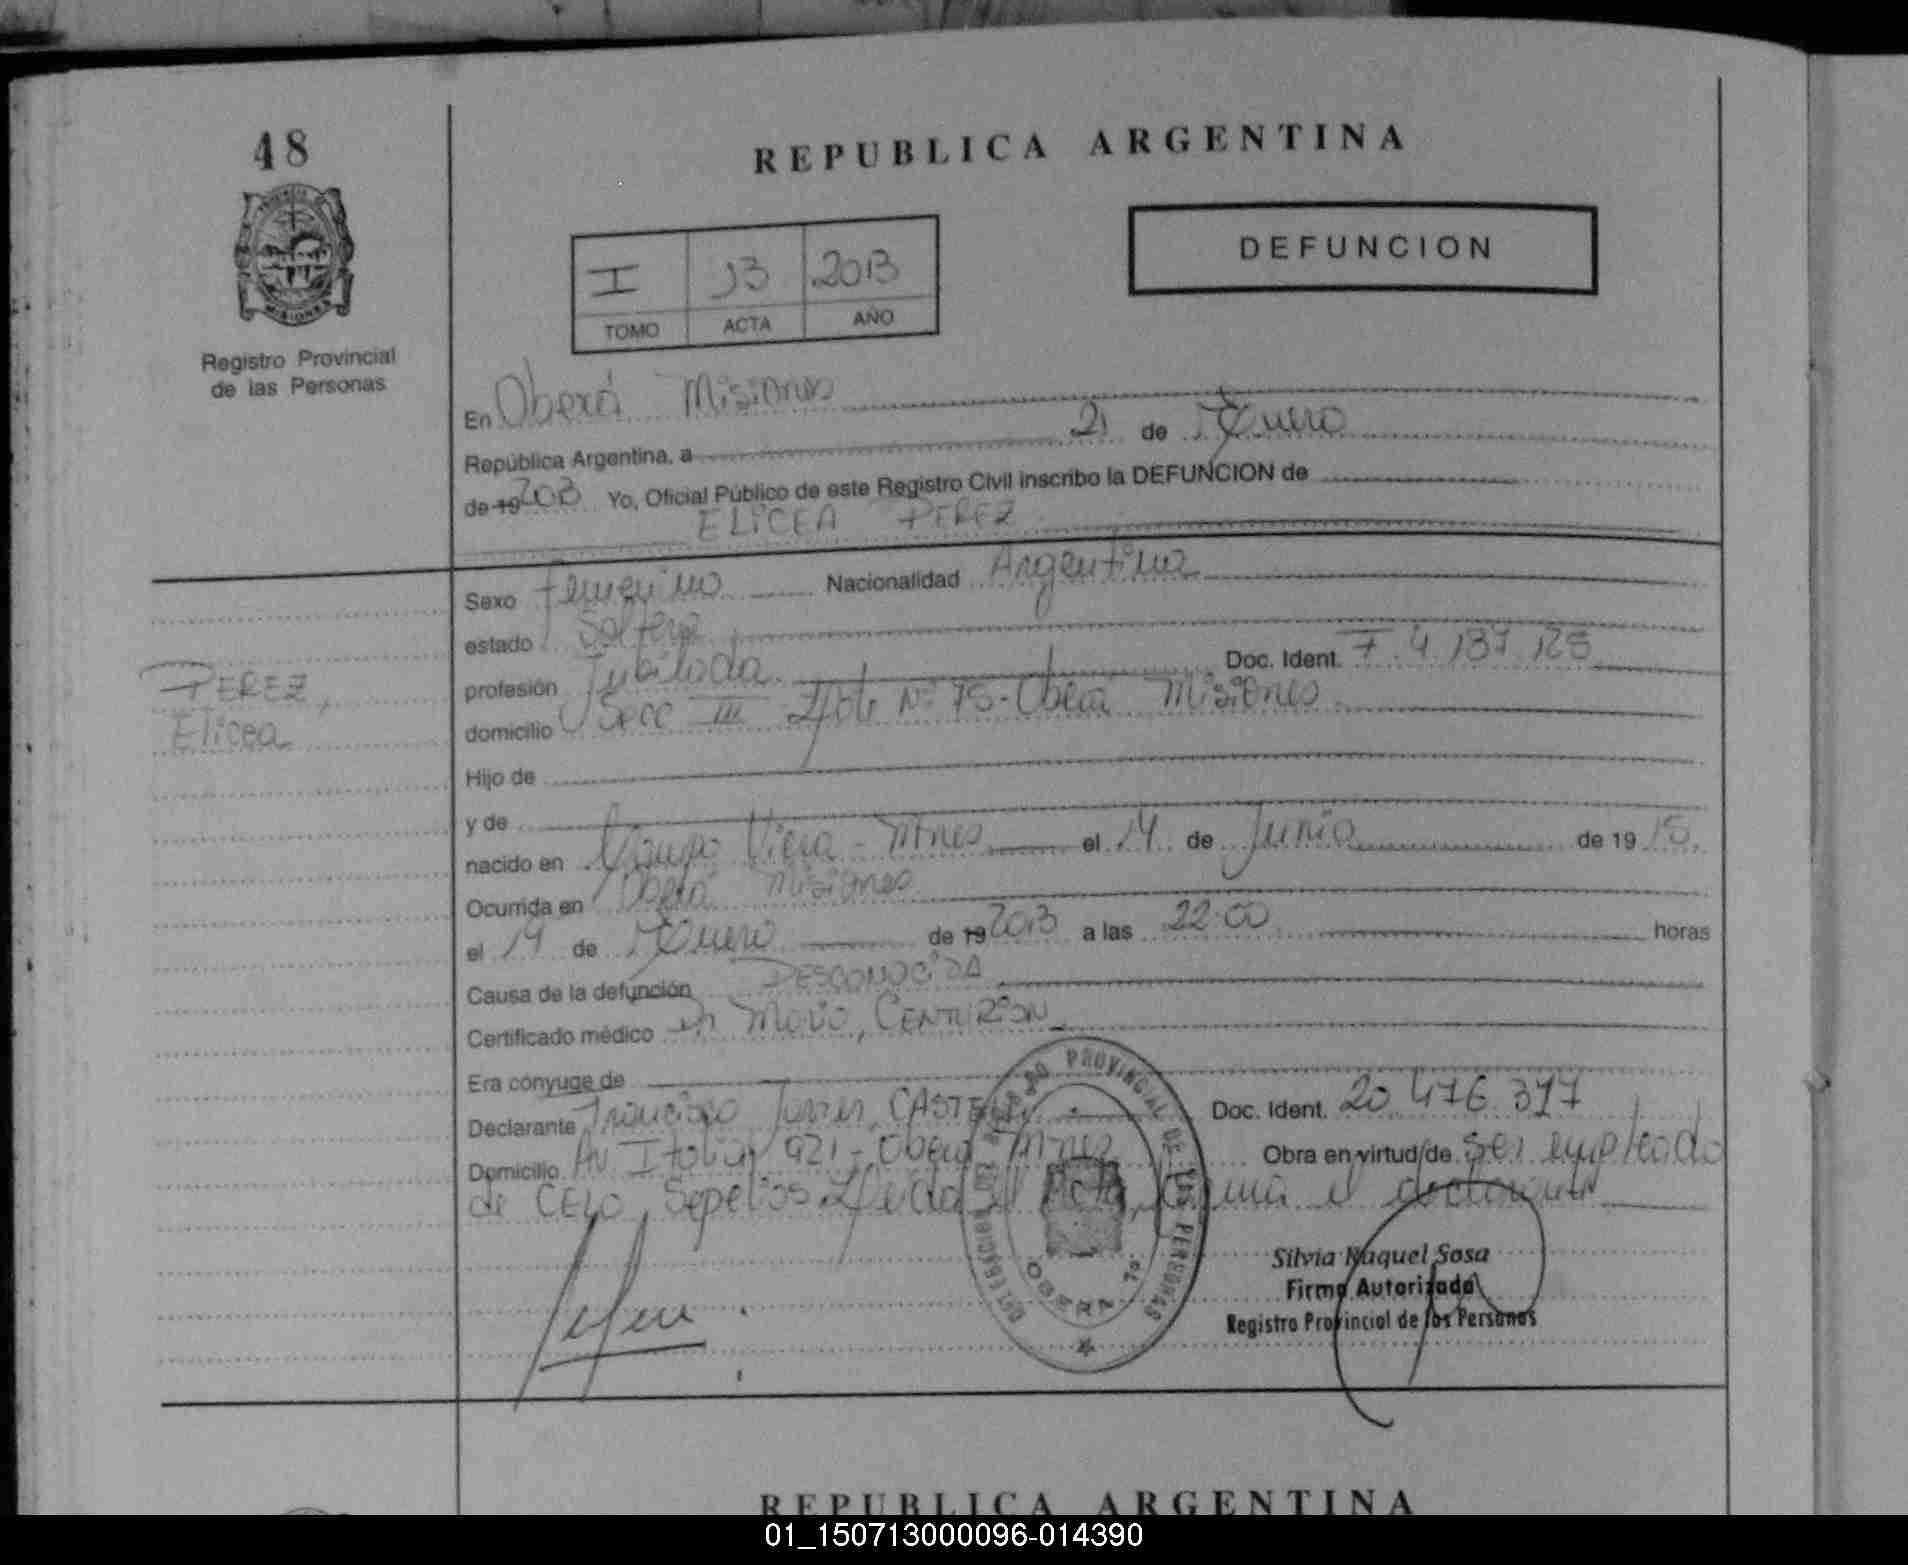 48
REPUBLICA ARGENTINA
DEFUNCION
I 13 2013
TOMO ACTA AÑO
Registro Provincial
de las Personas
En Oberá Misiones
República Argentina, a 21 de Enero
de 19 2013 Yo, Oficial Público de este Registro Civil inscribo la DEFUNCION de
ELICEA PEREZ
Sexo Femenino Nacionalidad Argentina
estado Soltera
profesión Jubilada Doc. Ident. F 4.187.125
domicilio Secc III Lote Nº 75 - Oberá Misiones
PEREZ,
Elicea
Hijo de
y de
nacido en Campo Viera - Mnes el 14 de Junio de 19 15.
Ocurrida en Oberá Misiones
el 19 de Enero de 19 2013 a las 22:00 horas
Causa de la defunción DESCONOCIDA
Certificado médico CENTURION
Era cónyuge de
Declarante Francisco Javier, Doc. Ident. 20.476.397
Domicilio Av Italia 921 - Oberá Mnes Obra en virtud de ser empleado
de CELO Sepelios Leida el Acta, firma el declarante
Silvia Raquel Sosa
Firma Autorizada
Registro Provincial de las Personas
PROVINCIAL DE LAS PERSONAS
OBERA
REPUBLICA ARGENTINA
01_150713000096-014390